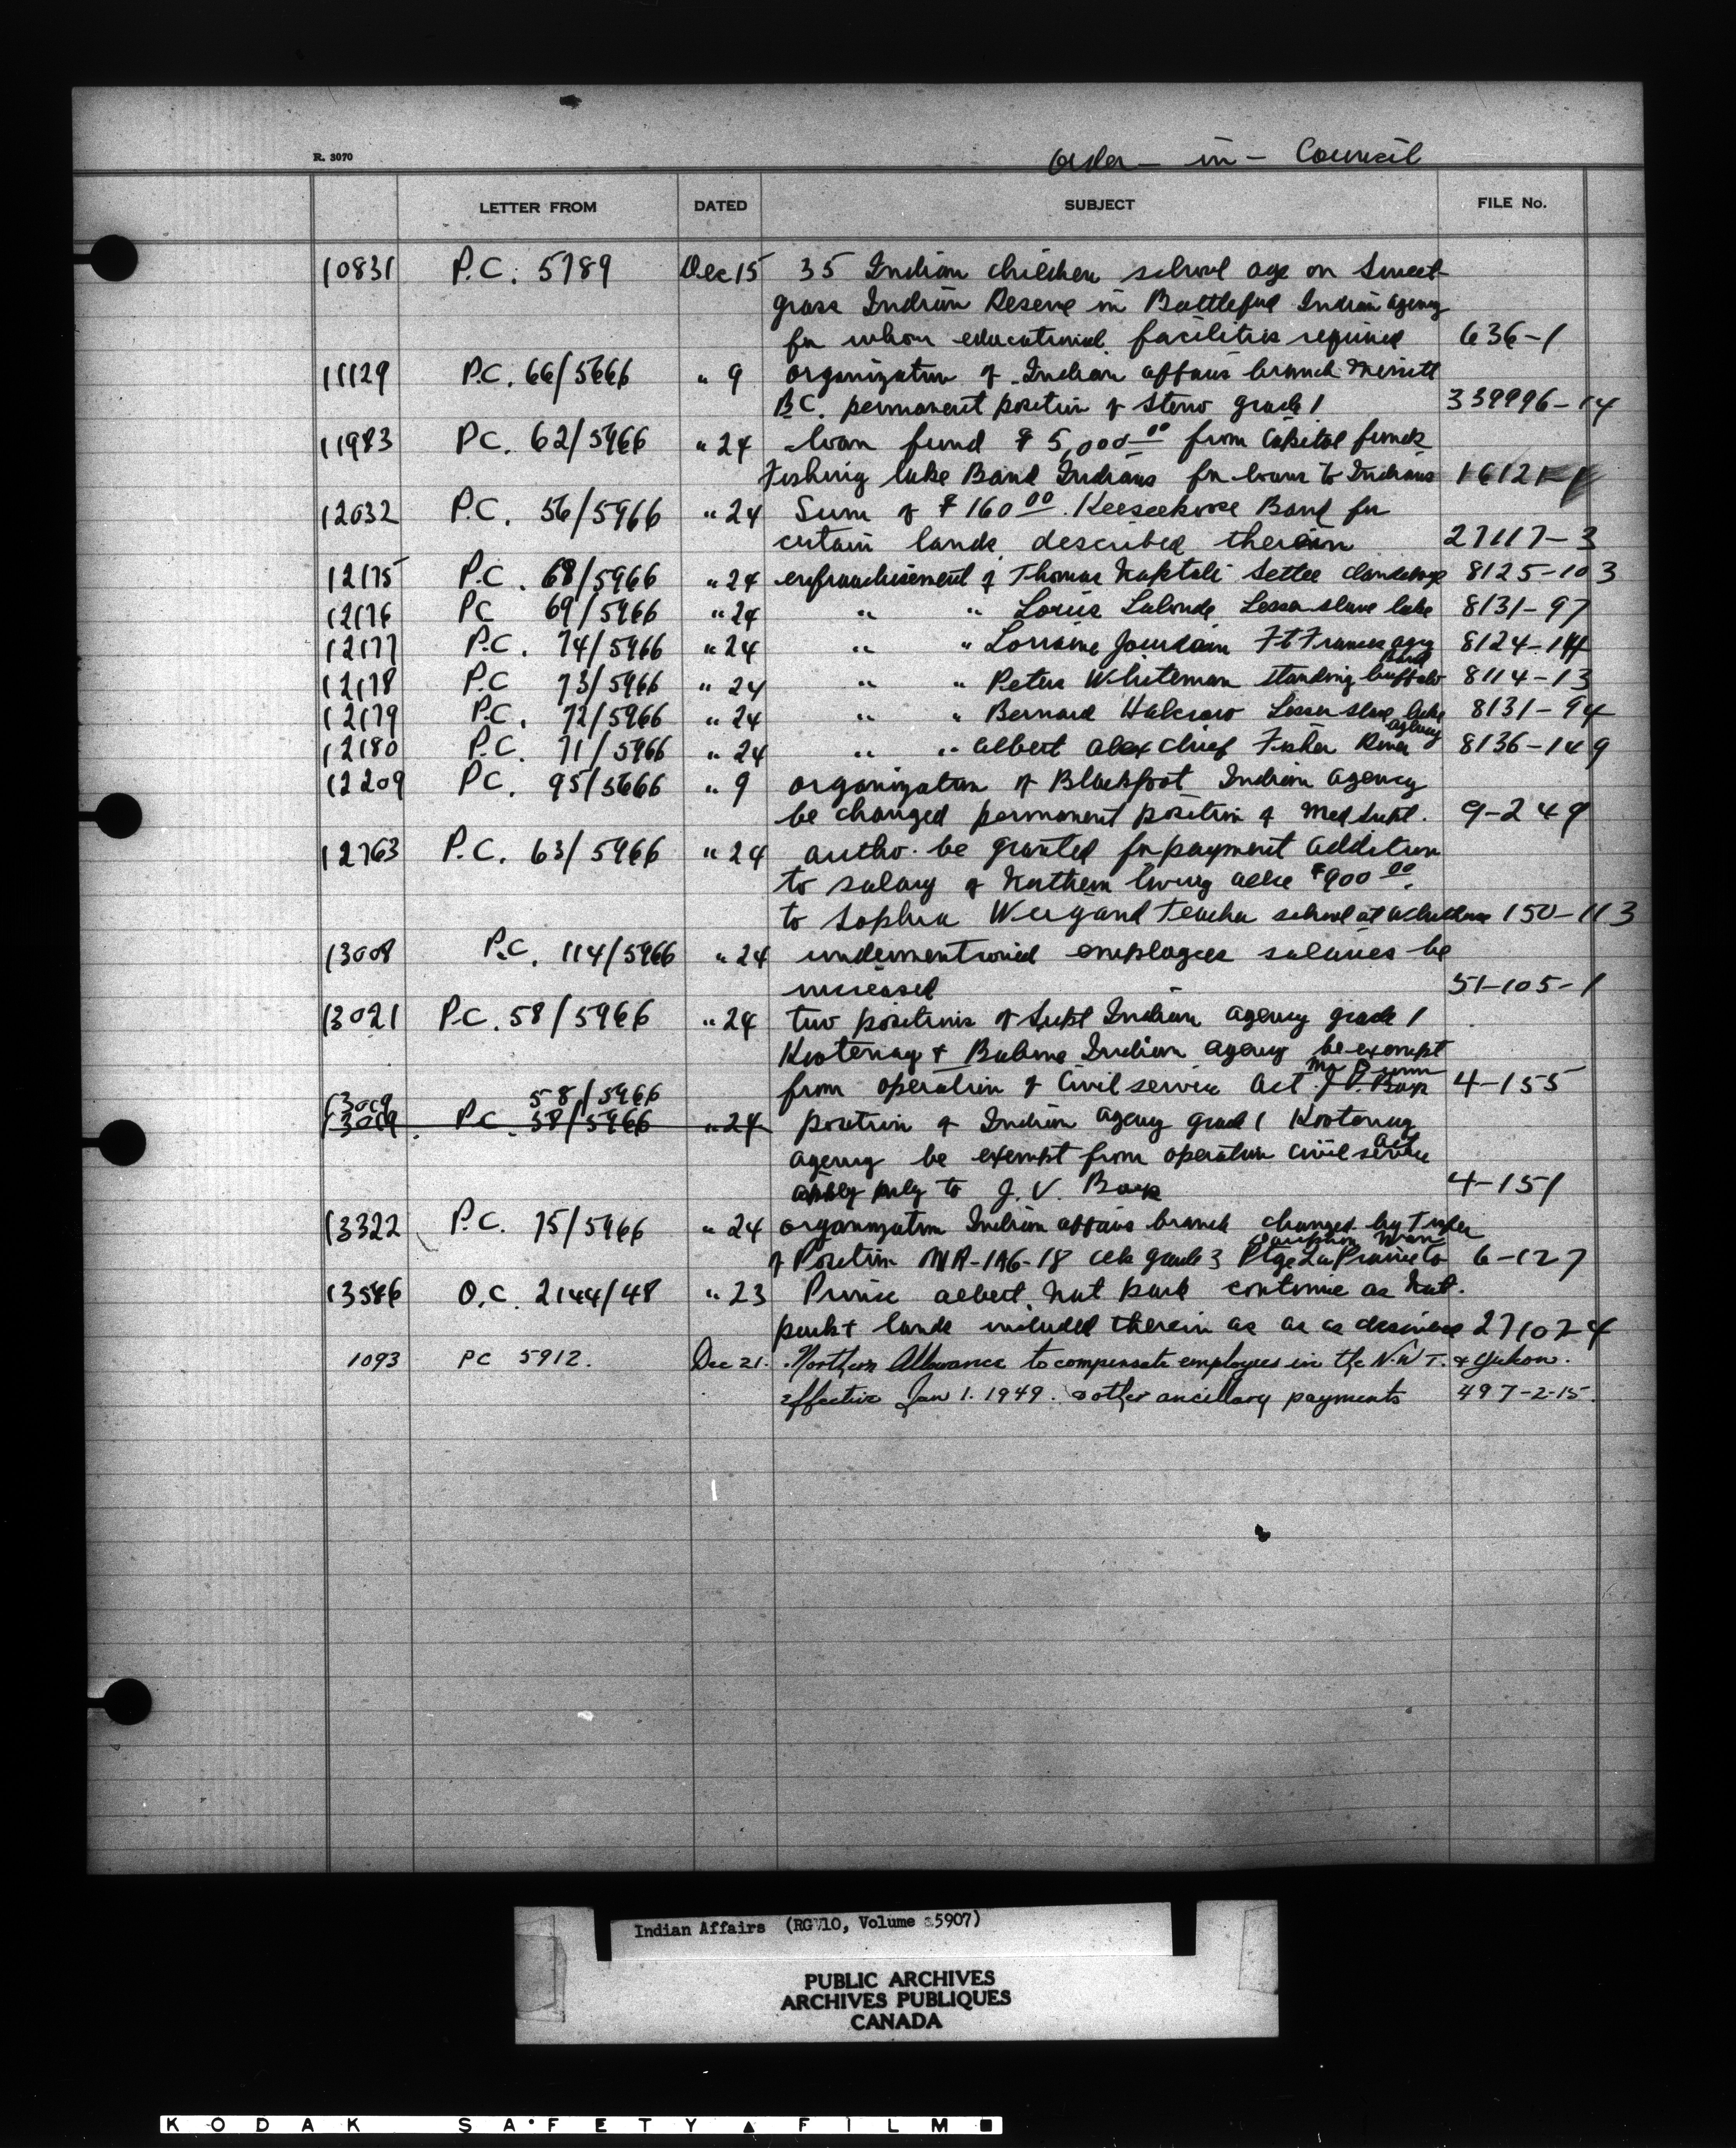 R. 3070
Order - in - Council
LETTER FROM DATED SUBJECT FILE No.
10831 P.C. 5789 Dec 15 35 Indian children school age on Sweet
grass Indian Reserve in Battleford Indian agency
for whom educational facilities required 636-1
11129 P.C. 66/5666 " 9 organization of Indian affairs branch Merritt
B.C. permanent position of Steno grade 1 339996-14
11983 P.C. 62/5966 " 24 loan fund $5,000.00 from Capital funds
Fishing lake Band Indians for loans to Indians 16121
12032 P.C. 56/5966 " 24 Sum of $160.00 Keeseekoose Band for
certain lands described therein 27117-3
12175 P.C. 68/5966 " 24 enfranchisement of Thomas Naptali Settee 8125-103
12176 PC 69/5966 " 24 " " Louis Lalonde Lesser slave lake 8131-97
12177 P.C. 74/5966 " 24 " " Lorraine Jourdain Ft Frances agcy 8124-144
12178 P.C 73/5966 " 24 " " Peter Whiteman standing buffalo Band 8114-13
12179 P.C. 72/5966 " 24 " " Bernard Halcrow Lesser slave lake 8131-94
12180 P.C. 71/5966 " 24 " " albert alex chief Fisher River agency 8136-149
12209 P.C. 95/5666 " 9 organization of Blackfoot Indian agency
be changed permanent position of Med Supt. 9-249
12763 P.C. 63/5966 " 24 autho. be granted for payment addition
to salary of Northern living allce $900.00
to Sophia Weigand Teacher school at 150-113
13008 P.C. 114/5966 " 24 undermentioned employees salaries be
increased 51-105-1
13021 P.C. 58/5966 " 24 two positions of Supt Indian agency grade 1
Kootenay + Babine Indian agency be exempt
from operation of Civil service act J.V. Boys 4-155
13019 58/5966
13019 P.C. 58/5966 " 24 position of Indian agency grade 1 Kootenay
agency be exempt from operation civil service act
apply only to J. V. Boys 4-151
13322 P.C. 75/5966 " 24 organization Indian affairs branch changed by Tsfer
of Position MR-1A6-18 clk grade 3 Ptge La Prairie to Dauphin Man 6-127
13546 O.C. 2144/48 " 23 Prince albert Nat park continue as Nat.
park + lands included therein as as as desired 271024
1093 PC 5912. Dec 21. Northern Allowance to compensate employees in the N.W T. & Yukon.
effective Jan 1. 1949. & other ancillary payments 497-2-15.
Indian Affairs (RG 10, Volume 5907)
PUBLIC ARCHIVES
ARCHIVES PUBLIQUES
CANADA
KODAK SAFETY FILM